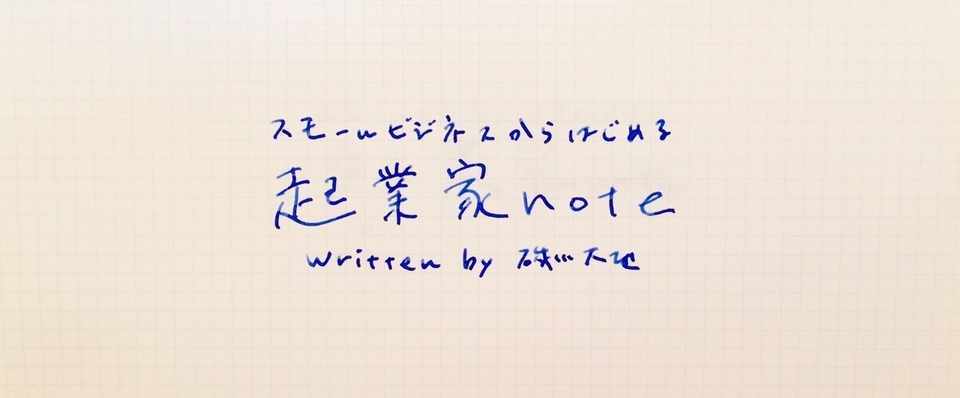 スモールビジネスからはじめる
起業家note
written by